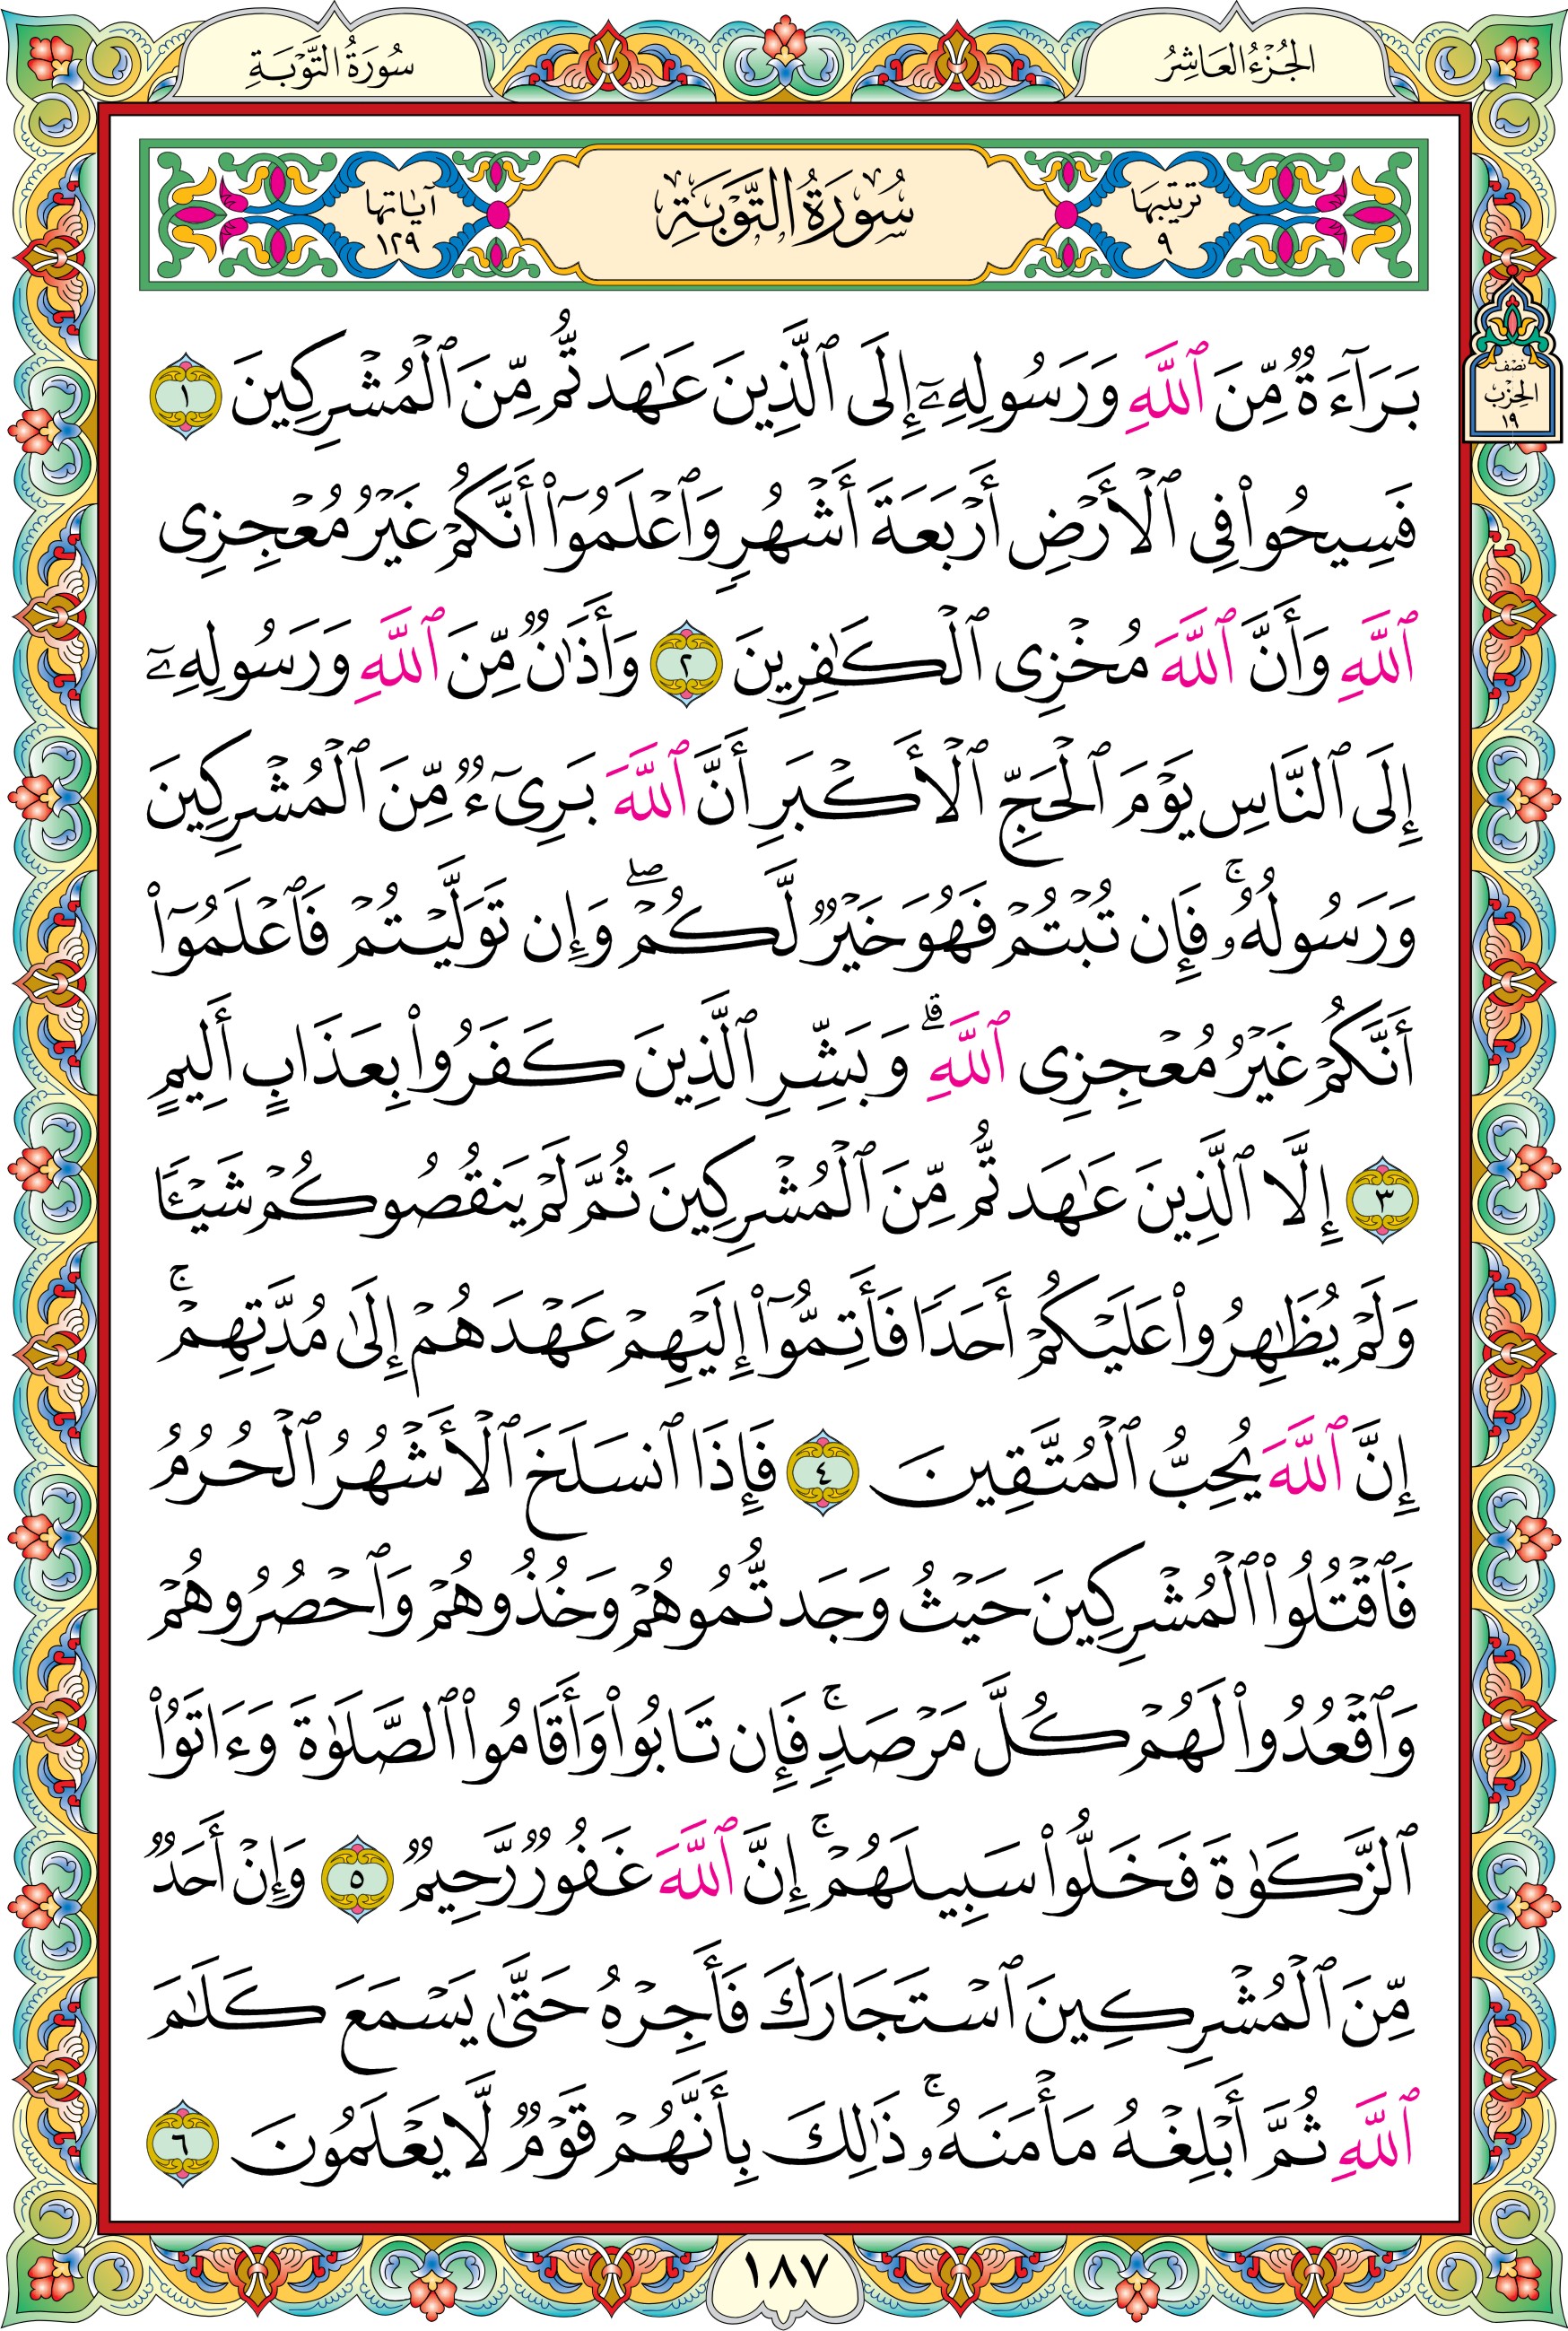 الجُزْءُ العَاشِرُ
سُورَةُ التَّوْبَةِ
ترتيبها
٩
سُورَةُ التَّوْبَةِ
آياتها
١٢٩
نصف
الحزب
١٩
بَرَآءَةٌ مِّنَ ٱللَّهِ وَرَسُولِهِۦٓ إِلَى ٱلَّذِينَ عَٰهَدتُّم مِّنَ ٱلْمُشْرِكِينَ ١
فَسِيحُوا۟ فِى ٱلْأَرْضِ أَرْبَعَةَ أَشْهُرٍ وَٱعْلَمُوٓا۟ أَنَّكُمْ غَيْرُ مُعْجِزِى
ٱللَّهِ وَأَنَّ ٱللَّهَ مُخْزِى ٱلْكَٰفِرِينَ ٢ وَأَذَٰنٌ مِّنَ ٱللَّهِ وَرَسُولِهِۦٓ
إِلَى ٱلنَّاسِ يَوْمَ ٱلْحَجِّ ٱلْأَكْبَرِ أَنَّ ٱللَّهَ بَرِىٓءٌ مِّنَ ٱلْمُشْرِكِينَ
وَرَسُولُهُۥ ۚ فَإِن تُبْتُمْ فَهُوَ خَيْرٌ لَّكُمْ ۖ وَإِن تَوَلَّيْتُمْ فَٱعْلَمُوٓا۟
أَنَّكُمْ غَيْرُ مُعْجِزِى ٱللَّهِ ۗ وَبَشِّرِ ٱلَّذِينَ كَفَرُوا۟ بِعَذَابٍ أَلِيمٍ
٣ إِلَّا ٱلَّذِينَ عَٰهَدتُّم مِّنَ ٱلْمُشْرِكِينَ ثُمَّ لَمْ يَنقُصُوكُمْ شَيْـًٔا
وَلَمْ يُظَٰهِرُوا۟ عَلَيْكُمْ أَحَدًا فَأَتِمُّوٓا۟ إِلَيْهِمْ عَهْدَهُمْ إِلَىٰ مُدَّتِهِمْ ۚ
إِنَّ ٱللَّهَ يُحِبُّ ٱلْمُتَّقِينَ ٤ فَإِذَا ٱنسَلَخَ ٱلْأَشْهُرُ ٱلْحُرُمُ
فَٱقْتُلُوا۟ ٱلْمُشْرِكِينَ حَيْثُ وَجَدتُّمُوهُمْ وَخُذُوهُمْ وَٱحْصُرُوهُمْ
وَٱقْعُدُوا۟ لَهُمْ كُلَّ مَرْصَدٍ ۚ فَإِن تَابُوا۟ وَأَقَامُوا۟ ٱلصَّلَوٰةَ وَءَاتَوُا۟
ٱلزَّكَوٰةَ فَخَلُّوا۟ سَبِيلَهُمْ ۚ إِنَّ ٱللَّهَ غَفُورٌ رَّحِيمٌ ٥ وَإِنْ أَحَدٌ
مِّنَ ٱلْمُشْرِكِينَ ٱسْتَجَارَكَ فَأَجِرْهُ حَتَّىٰ يَسْمَعَ كَلَٰمَ
ٱللَّهِ ثُمَّ أَبْلِغْهُ مَأْمَنَهُۥ ۚ ذَٰلِكَ بِأَنَّهُمْ قَوْمٌ لَّا يَعْلَمُونَ ٦
١٨٧